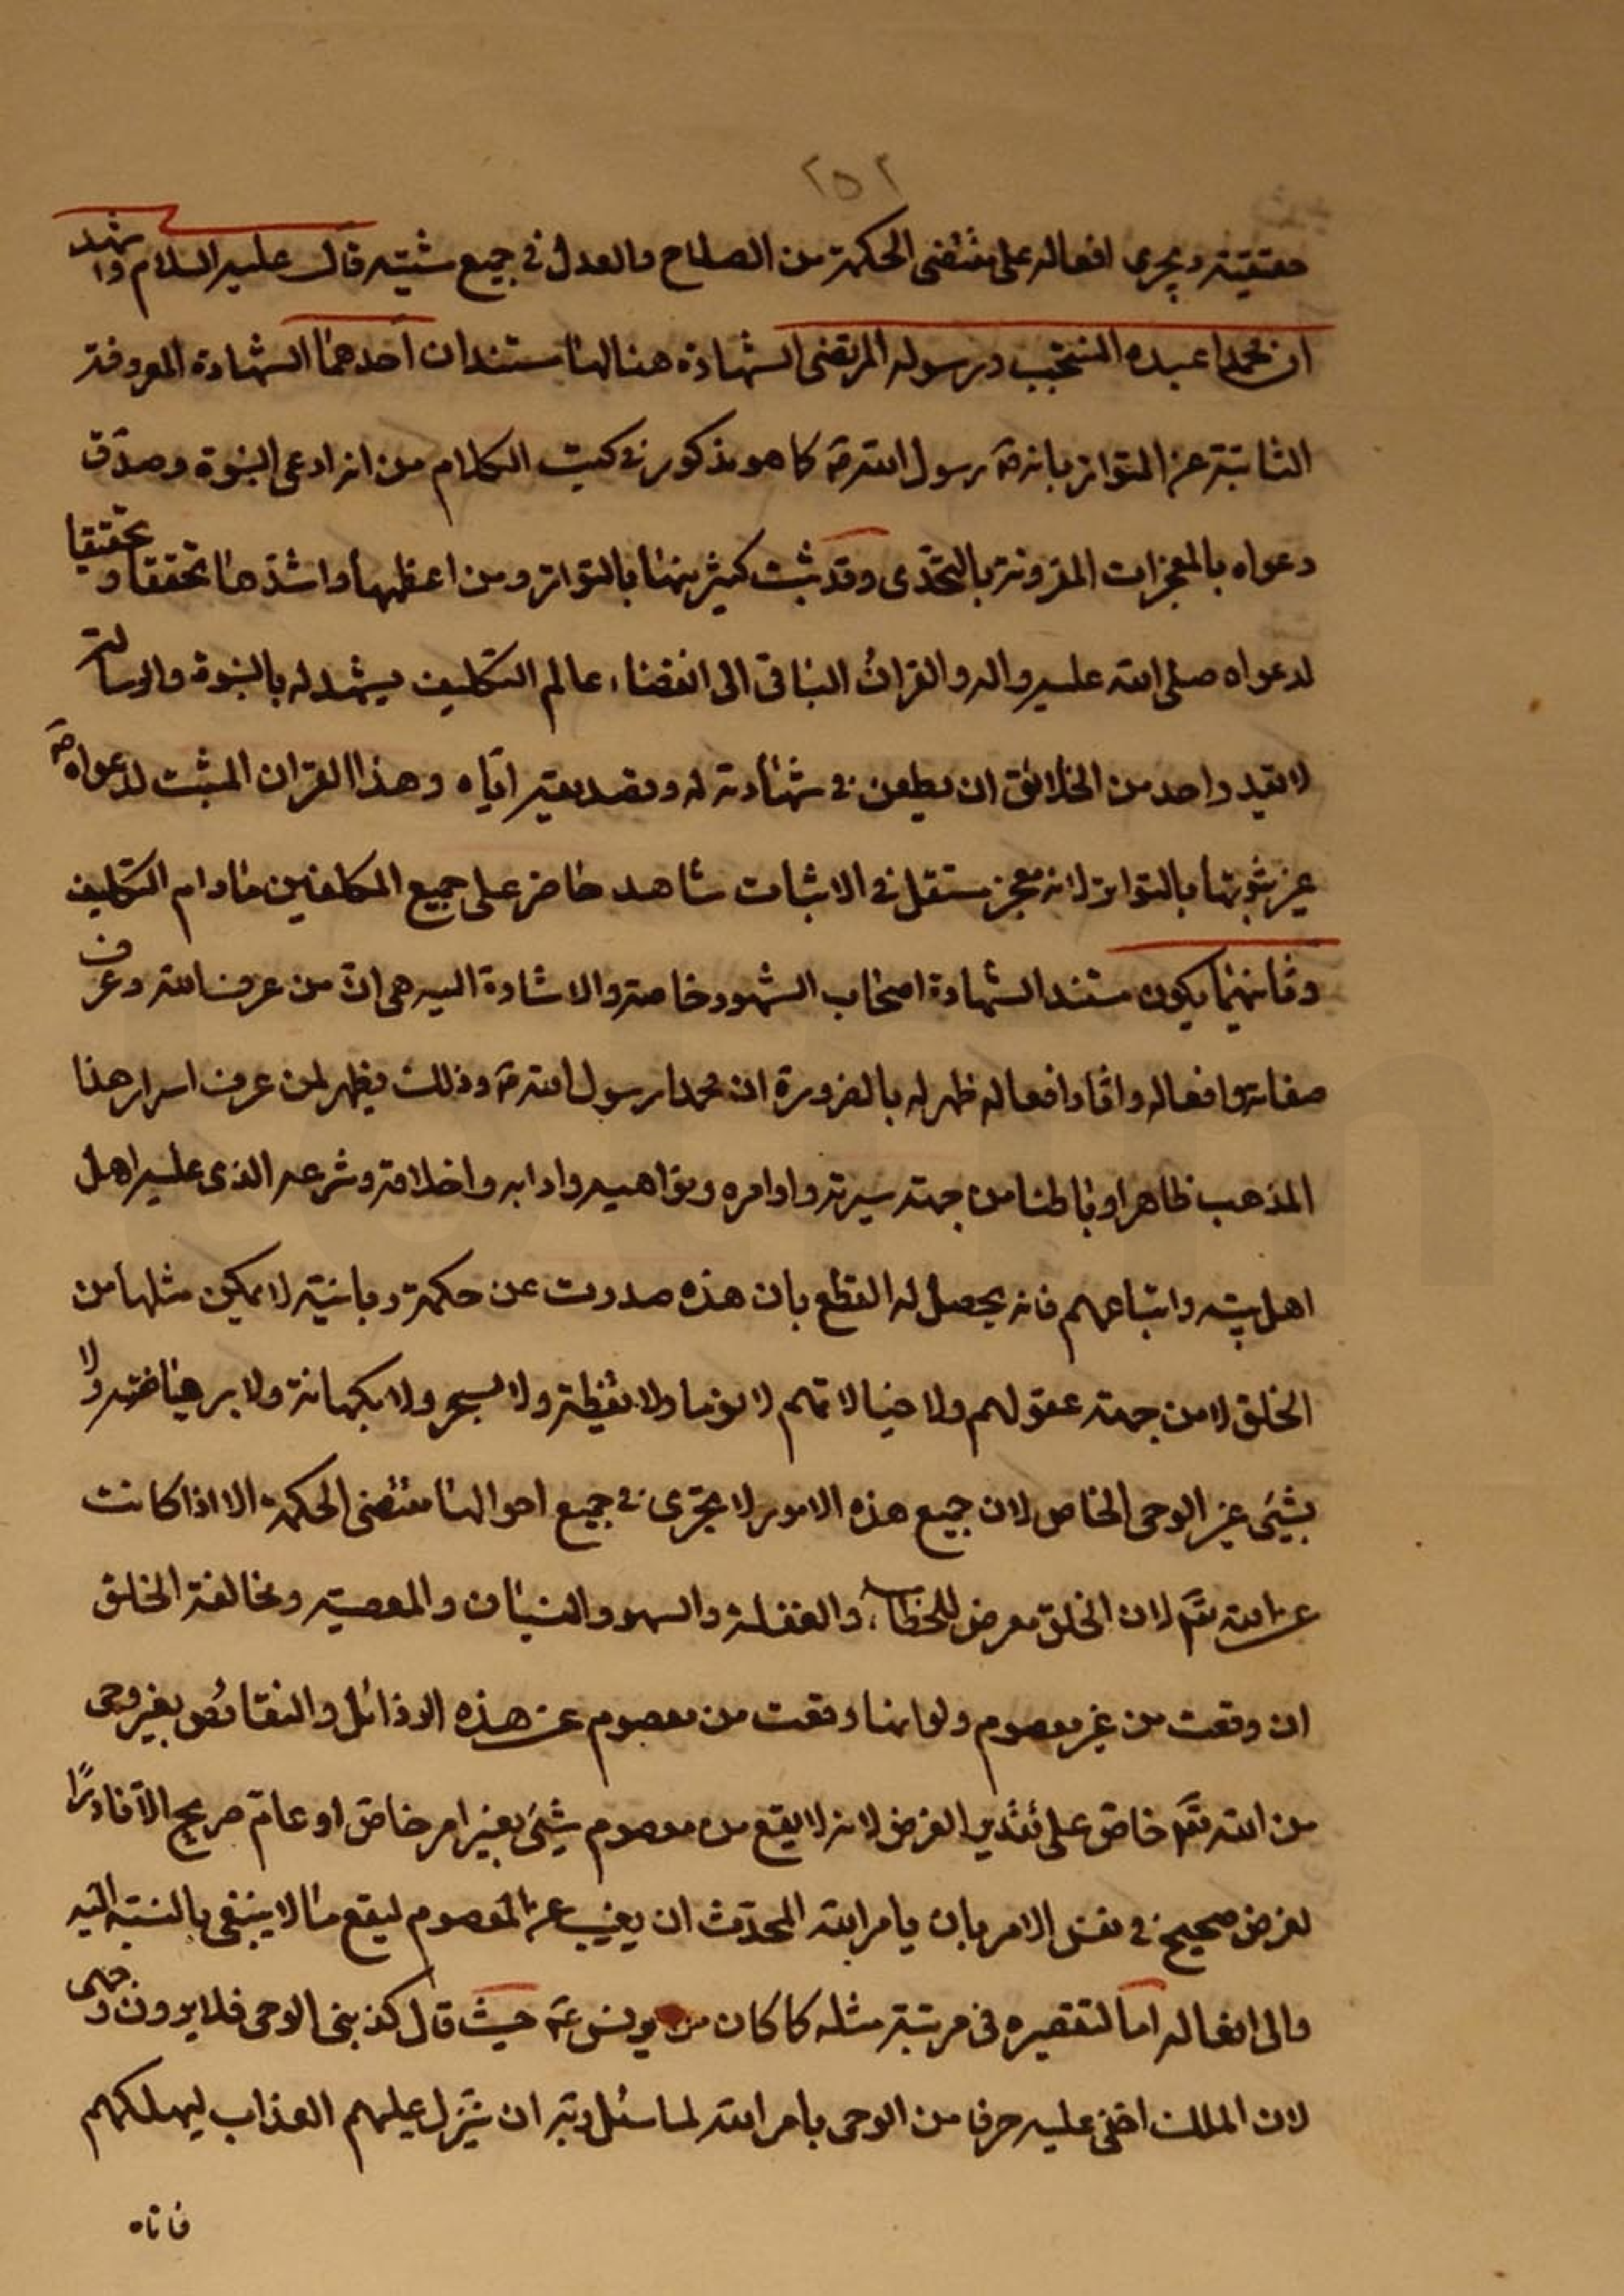 ٢٥٢
حقيقية ويجرى افعاله على مقتضى الحكمة من الصلاح والعدل فى جميع شيته قال عليه السلام واشهد
ان محمدا عبده المنتجب ورسوله المرتضى الشهادة هنا لها مستندان احدهما الشهادة المعروفة
الثابتة عن التواتر بانه صَ رسول الله صَ كما هو مذكور فى كتب الكلام من انه ادعى النبوة وصدّق
دعواه بالمعجزات المقرونة بالتحدّى وقد ثبت كثير منها بالتواتر ومن اعظمها واشدّها تحققا وتحقيقا
لدعواه صلى الله عليه واله والقران الباقى الى انقضاء عالم التكليف يشهد له بالنبوة والرسالة
لا يقدر واحد من الخلائق ان يطعن فى شهادته له وتصديقه اياه وهذا القران المثبت لدعواه صَ
غير ثبوتها بالتواتر لانه معجز مستقل فى الاثبات شاهد حاضر على جميع المكلفين ما دام التكليف
وثانيهما يكون مستند الشهادة اصحاب الشهود خاصة والاشارة اليه هى انّ من عرف الله وعرف
صفاته وافعاله واثار افعاله ظهر له بالضرورة ان محمدا رسول الله صَ وذلك يظهر لمن عرف اسرار هذا
المذهب ظاهرا وباطنا من جهة سيرته واوامره ونواهيه وادابه واخلاقه وشرعه الذى عليه اهل
اهل بيته واتباعهم فانه يحصل له القطع بان هذه صدرت عن حكمة ربانية لا يمكن مثلها من
الخلق لا من جهة عقولهم ولا خيالاتهم لا نوما ولا يقظة ولا بسحر ولا بكهانة ولا برياضة ولا
بشىء غير الوحى الخاص لان جميع هذه الامور لا تجرى فى جميع احوالها مقتضى الحكمة الا اذا كانت
عن الله تعَ لان الخلق معرض للخطاء والغفلة والسهو والنسيان والمعصية ومخالفة الخلق
ان وقعت من غير معصوم ولو انها وقعت من معصوم عن هذه الرذائل والنقائص بغير وحى
من الله تعَ خاصّ على تقدير الفرض لانه لا يقع من معصوم شىء بغير امر خاصّ او عامّ صريح الّا نادرًا
لغرض صحيح فى نفس الامر بان يامر الله المحدّث ان يغيب عن المعصوم ليقع ما لا ينبغى بالنسبة اليه
والى افعاله اما لتقصيره فى مرتبة مثله كما كان من يونس عَ حيث قال كذبنى الوحى فلا يرون وجهى
لان الملك اخفى عليه حرفا من الوحى بامر الله لما سئل ربّه ان ينزل عليهم العذاب ليهلكهم
فاتاه